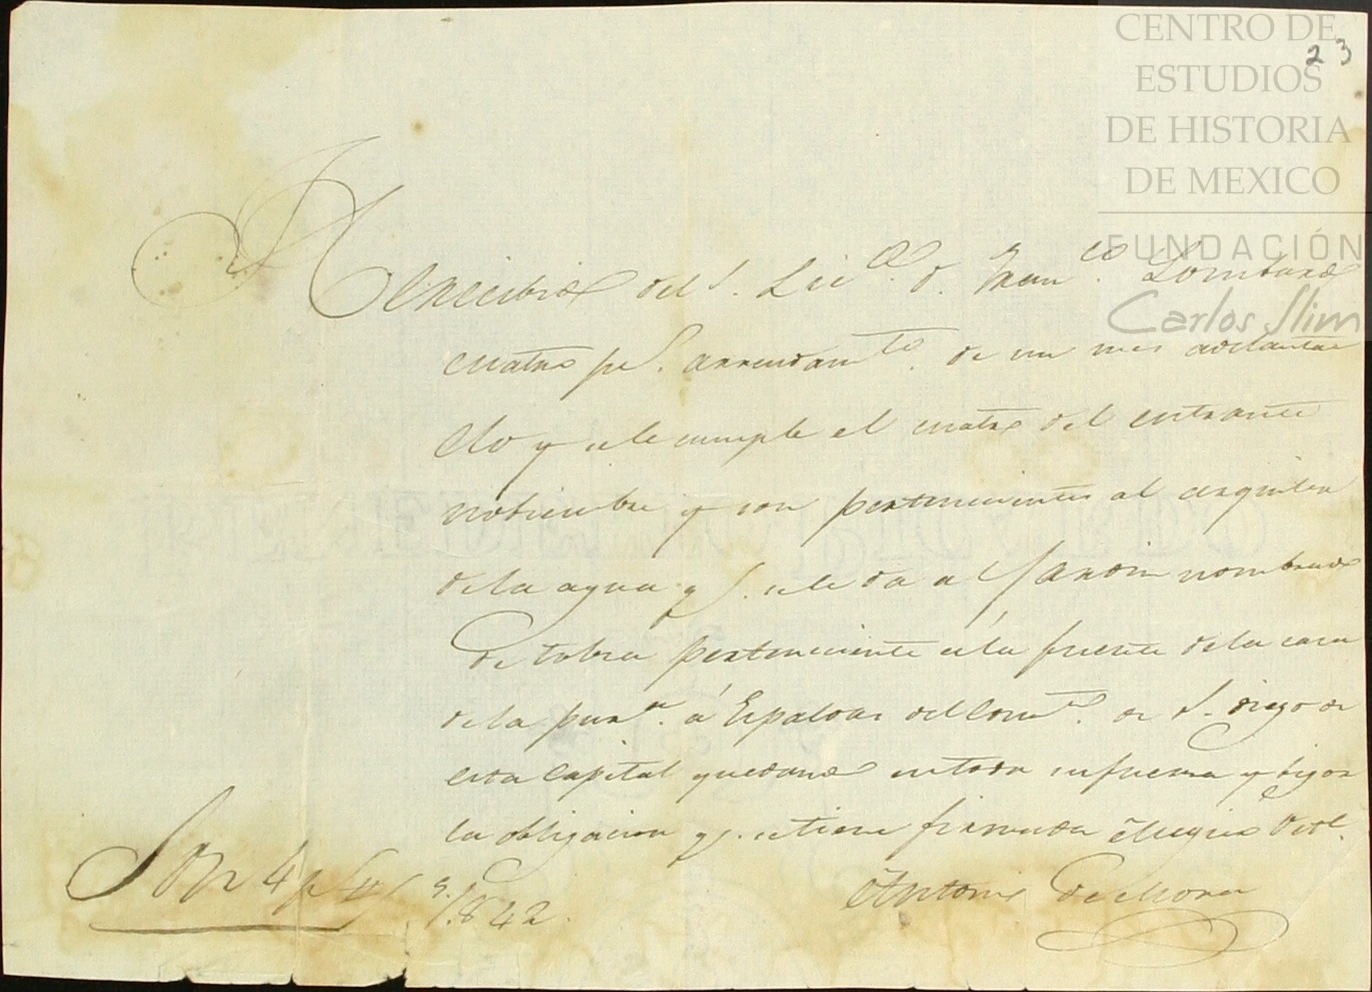 CENTRO DE
ESTUDIOS
DE HISTORIA
DE MEXICO
FUNDACIÓN
Carlos Slim
23
Recibi del S. Lic.do D. Fran.co Lombardo
cuatro ps. arrendamto. de un mes adelanta
do y se le cumple el cuatro del entrante
nobienbre y son pertenecientes al alquiler
de la agua qe. se le da al Jardin nombrado
de tolsa perteneciente a la fuente de la casa
de la a Espaldas del Conv.to de S. Diego de
esta Capital quedando en toda su fuersa y bigor
la obligacion qe. se tiene firmada Megico
1842.
Son 4 ps
Antonio de Mora